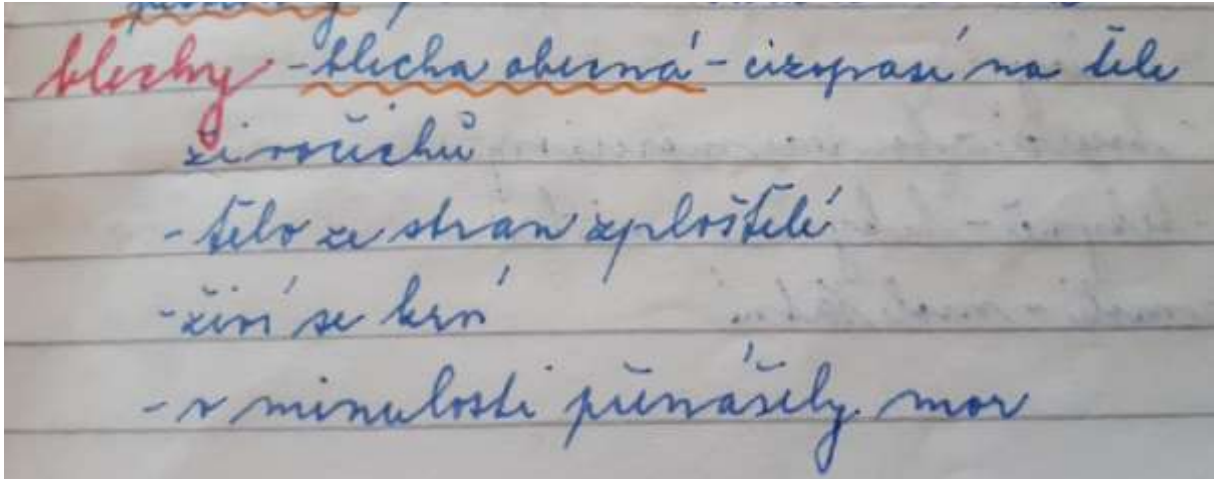 blechy - blecha obecná - cizopasí na těle
živočichů
- tělo ze stran zploštělé
- živí se krví
- v minulosti přenášely mor